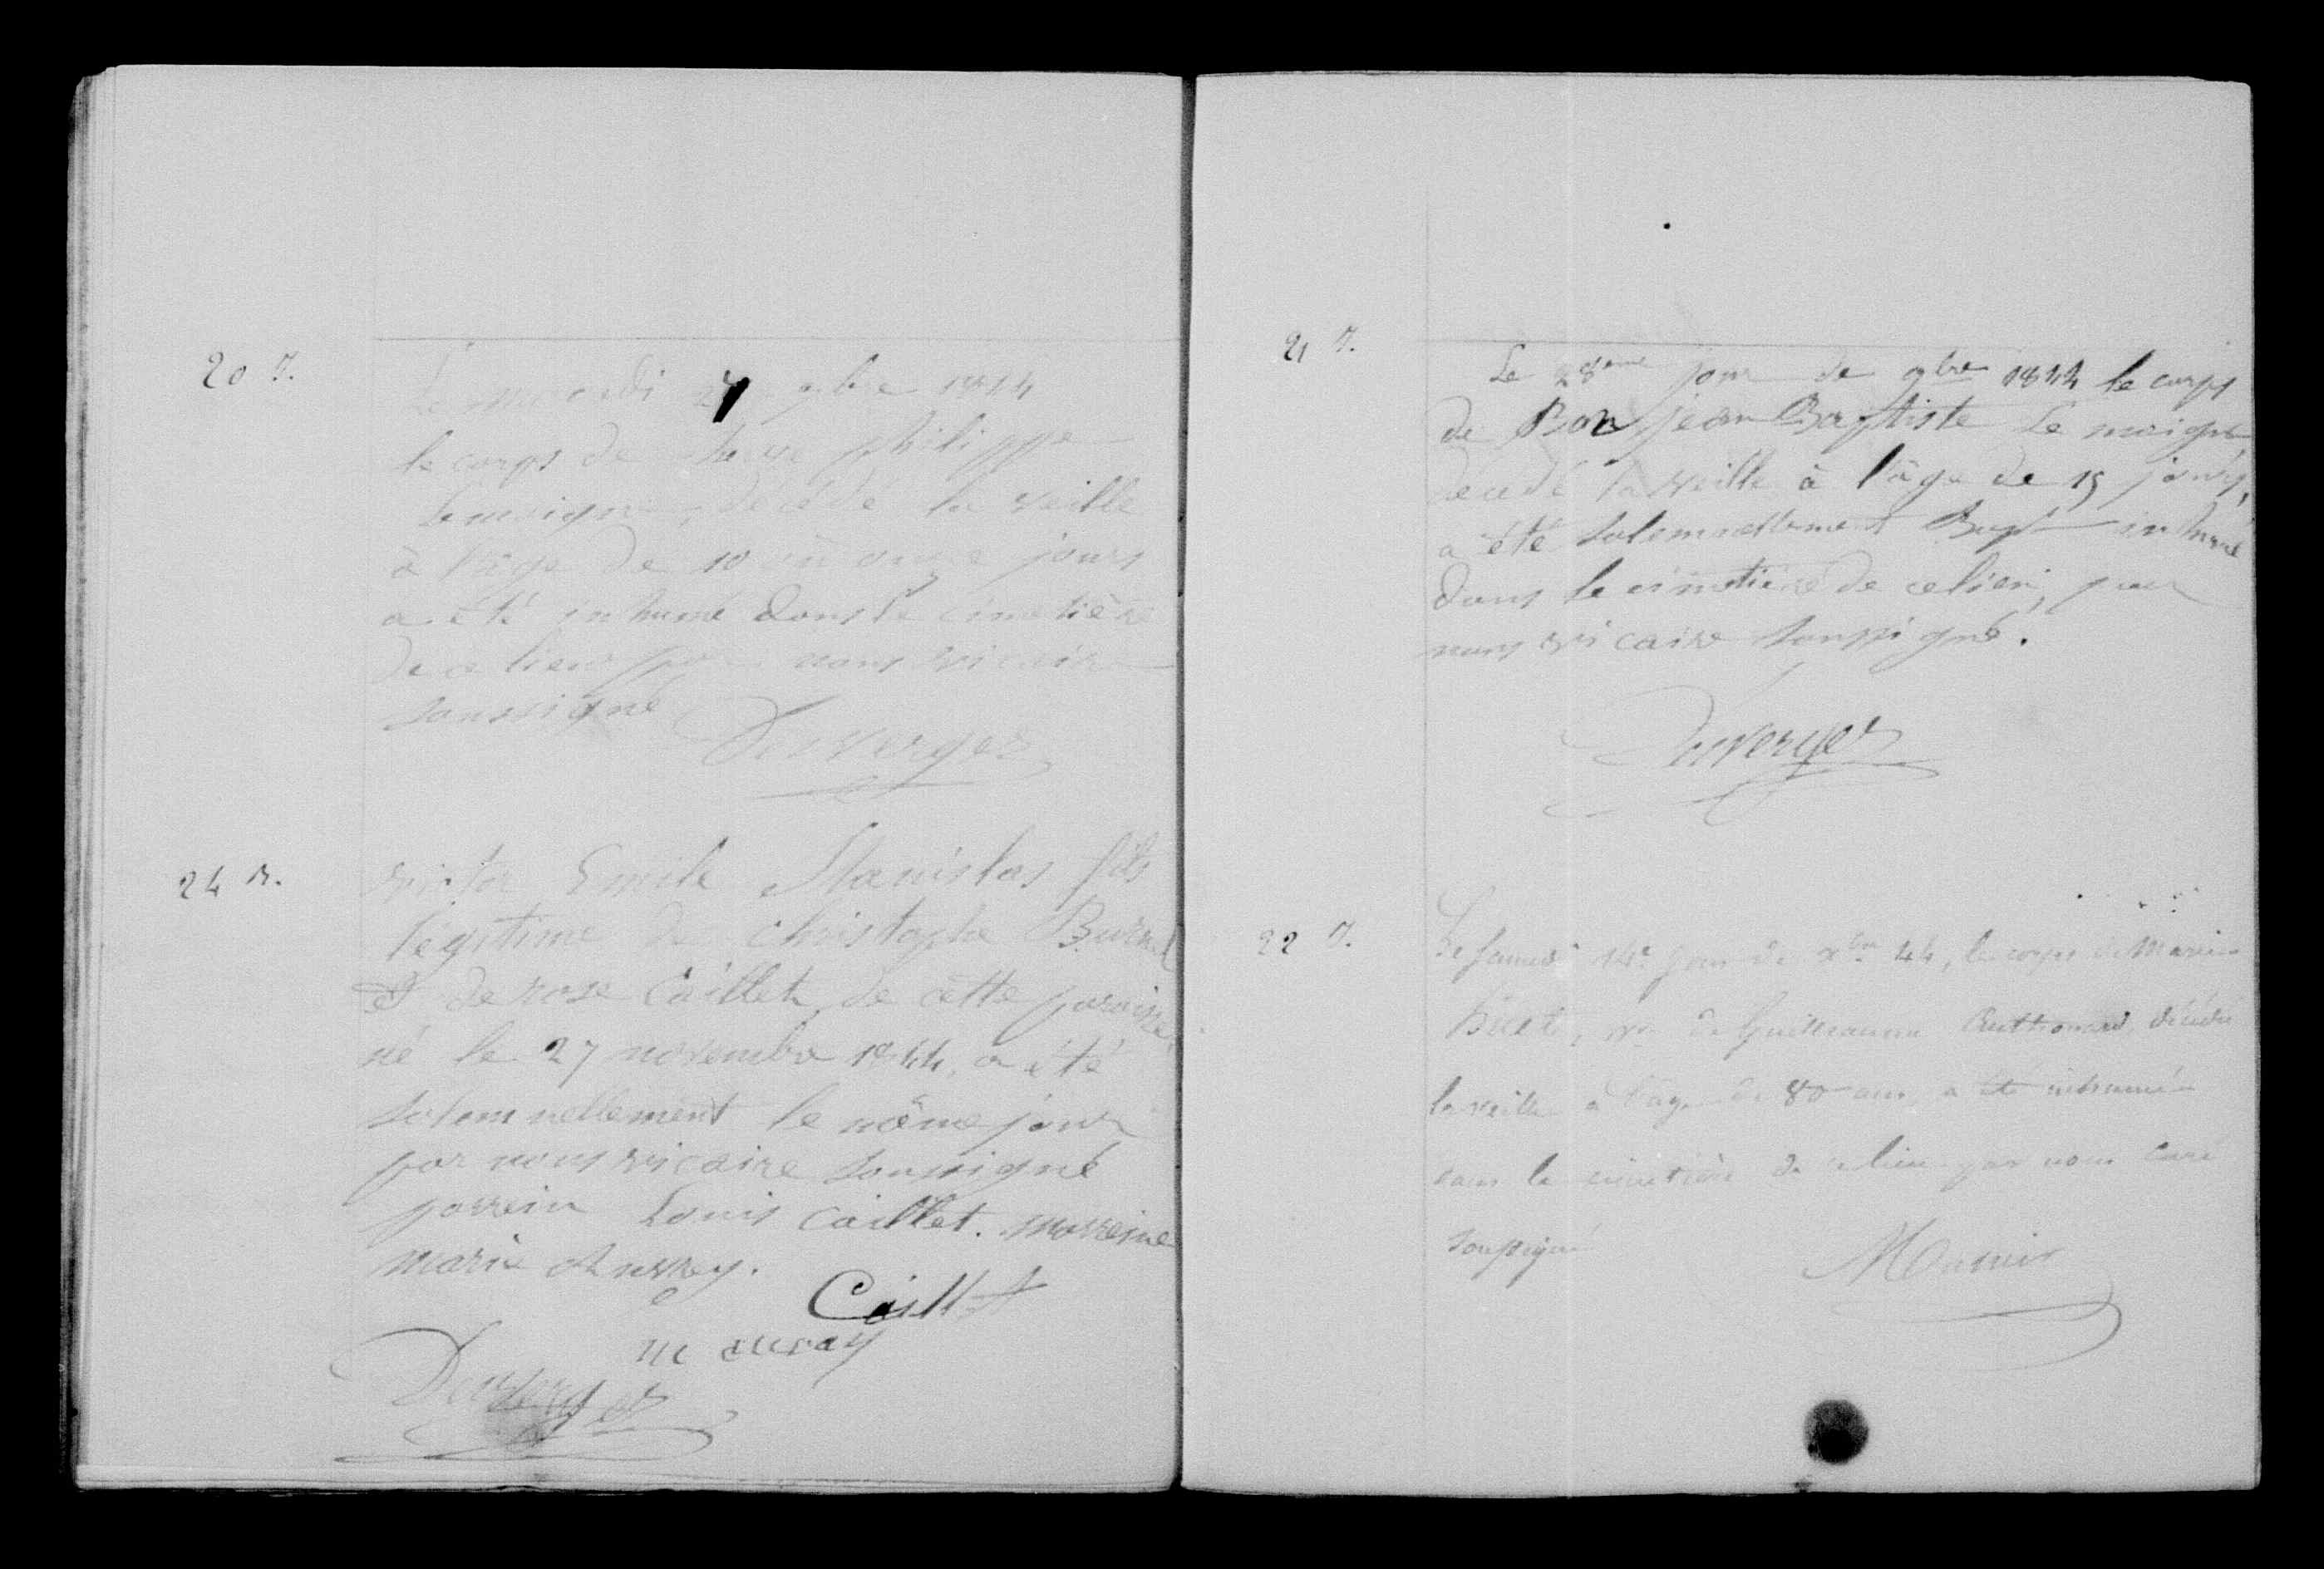 20 I.
Le mercredi 27 9bre 1844
le corps de philippe
Lemoigne, décédé la veille
à l'âge de 10 ou onze jours
a été inhumé dans le cimetière
de ce lieu par nous vicaire
soussigné
Duverger
24 B.
victor Emile Stanislas fils
légitime de christophe Burnel
et de rose Caillet de cette paroisse,
né le 27 novembre 1844, a été
solemnellement le même jour
par nous vicaire soussigné
parrein Louis Caillet. marreine
marie Auvray.
Caillet
m auvray
Duverger
21 I.
Le 28eme jour de 9bre 1844 le corps
de Bon jean Baptiste Le moigne
décédé la veille à l'âge de 15 jours,
a été solemnellement Bapt inhumé
dans le cimetière de ce lieu, par
nous vicaire soussigné.
Duverger
22 I.
Le samedi 14e jour de Xbre 44, le corps de Marie
, ve de Guillaume décédée
la veille à l'âge de 80 ans a été inhumée
dans le cimetière de ce lieu par nous curé
soussigné